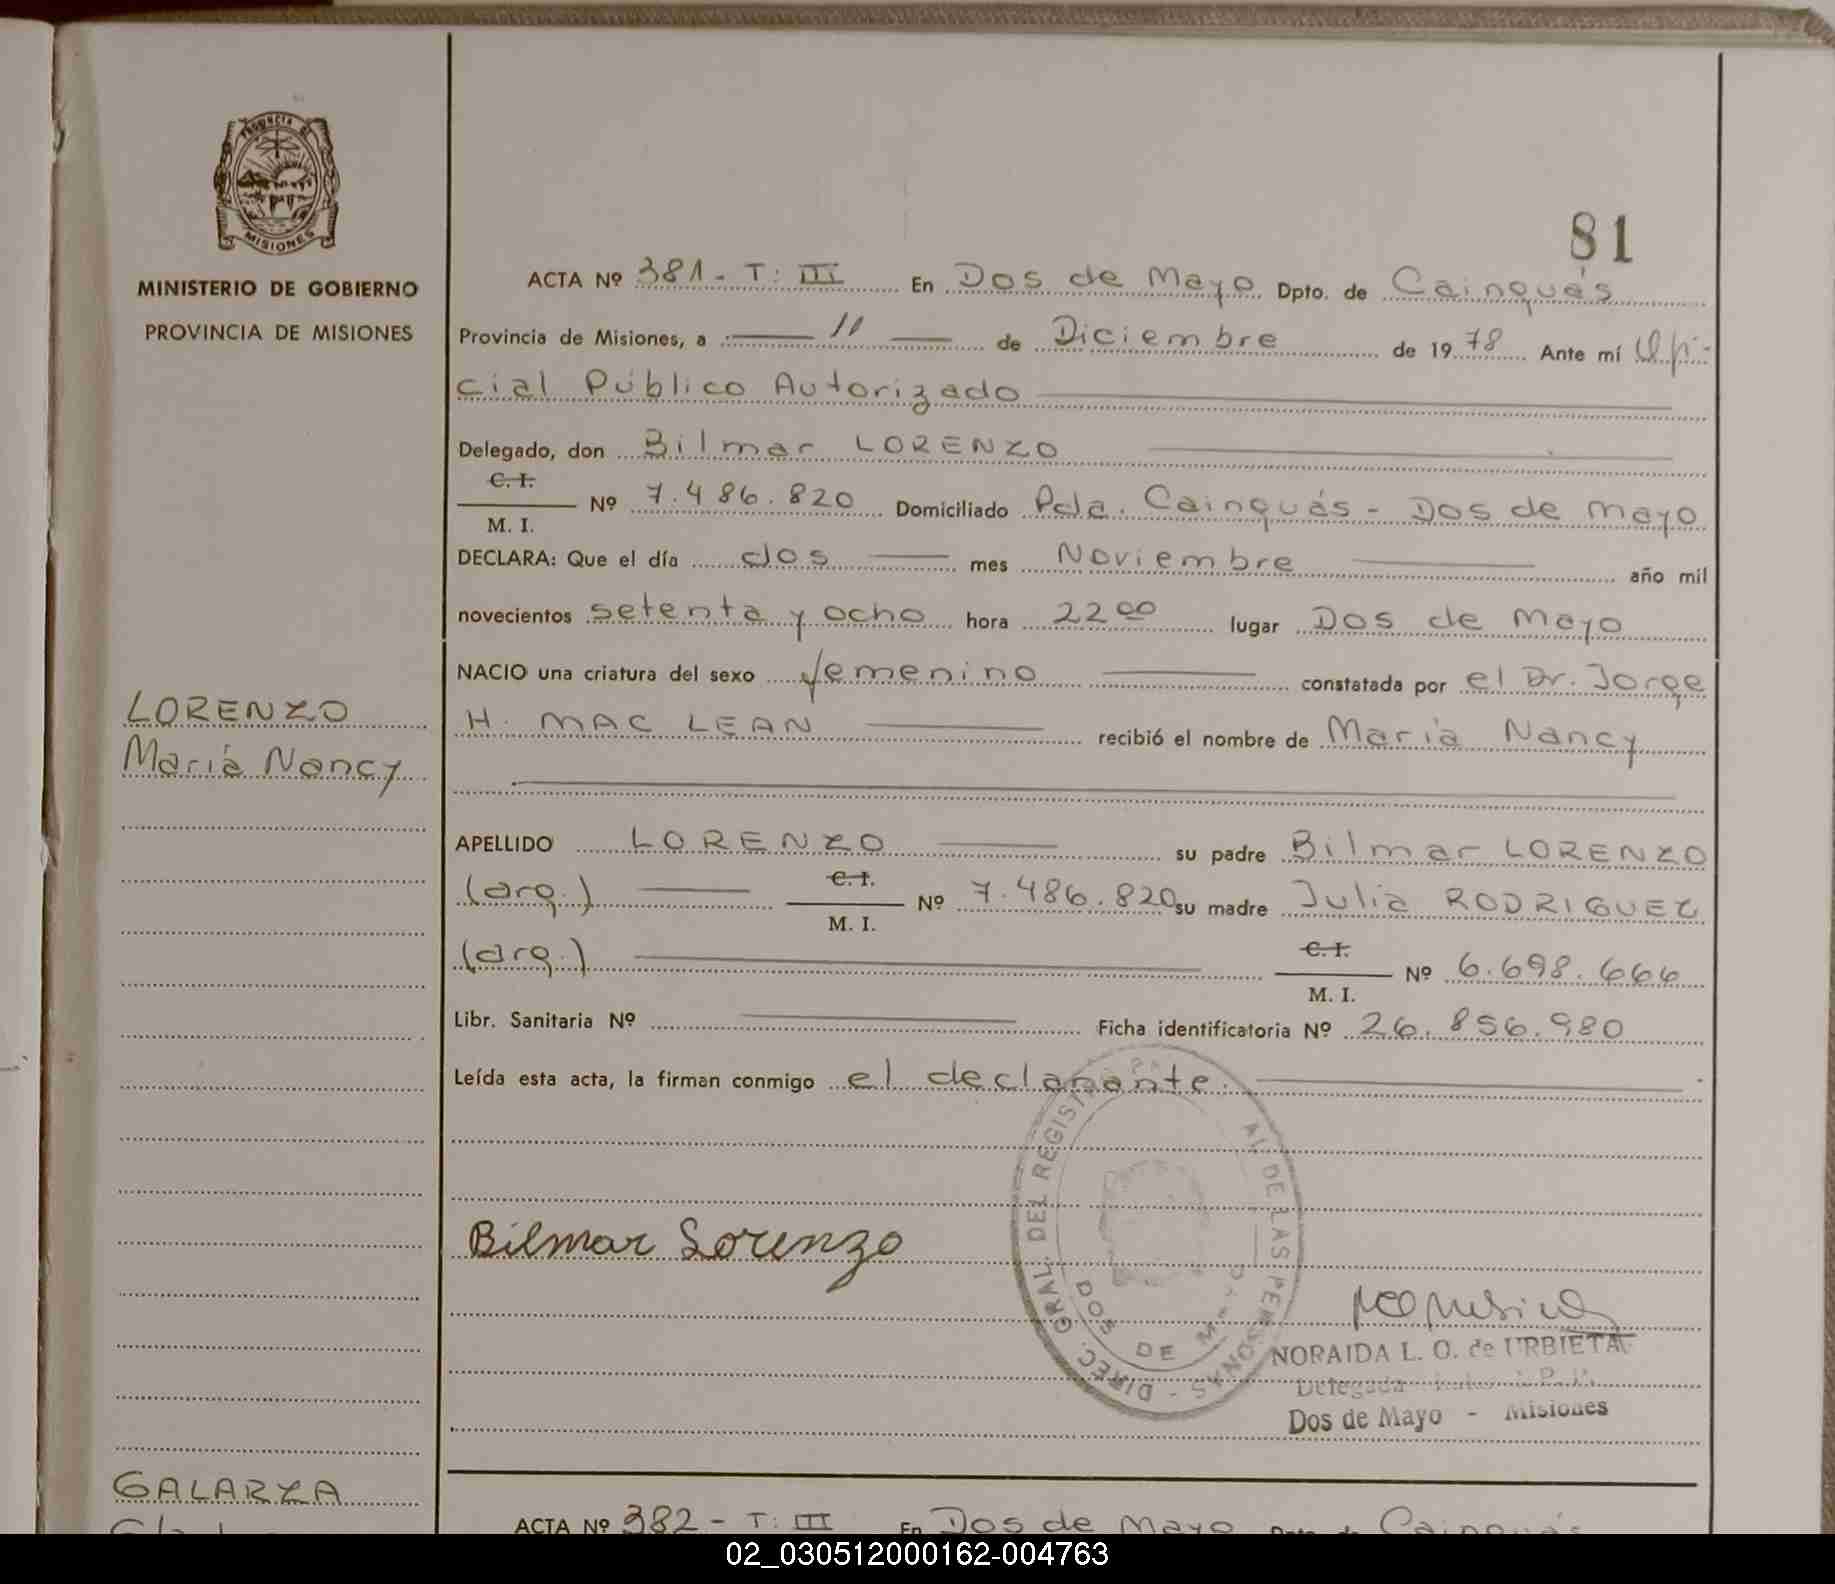 PROVINCIA DE
MISIONES
MINISTERIO DE GOBIERNO
PROVINCIA DE MISIONES
81
ACTA Nº 381 - T: III En Dos de Mayo Dpto. de Cainguás
Provincia de Misiones, a 11 de Diciembre de 1978 Ante mí Ofi-
cial Público Autorizado
Delegado, don Bilmar LORENZO
C. I.
M. I.
Nº 7.486.820 Domiciliado Pcla. Cainguás - Dos de Mayo
DECLARA: Que el día dos mes Noviembre año mil
novecientos setenta y ocho hora 22 00 lugar Dos de Mayo
NACIO una criatura del sexo femenino constatada por el Dr. Jorge
H. MAC LEAN recibió el nombre de María Nancy
LORENZO
María Nancy
APELLIDO LORENZO su padre Bilmar LORENZO
(arg.) C. I. M. I. Nº 7.486.820 su madre Julia RODRIGUEZ
(arg.) C. I. M. I. Nº 6.698.666
Libr. Sanitaria Nº Ficha identificatoria Nº 26.856.980
Leída esta acta, la firman conmigo el declarante.
Bilmar Lorenzo
DIREC. GRAL. DEL REGIST DE LAS PERSONAS
DOS DE MAYO
NORAIDA L. O. de URBIETA
Delegada
Dos de Mayo - Misiones
GALARZA
ACTA Nº 382 - T: III En Dos de Mayo Dpto. de Cainguás
02_030512000162-004763